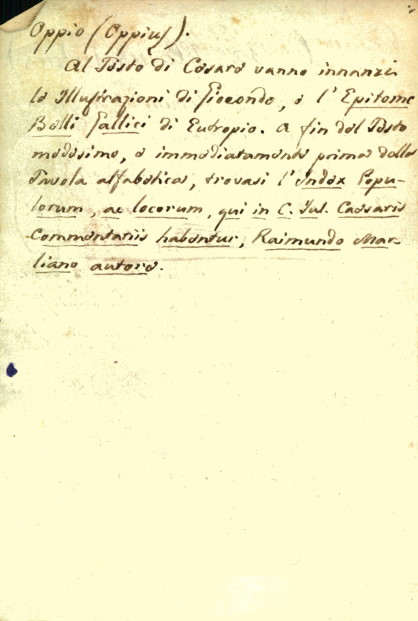 Oppio (Oppius).
Al Testo di Cesare vanno innanzi
le Illustrazioni di Giocondo, e l'Epitome
Belli Gallici di Eutropio. A fin del Testo
medesimo, e immediatamente prima della
Tavola alfabetica, trovasi l'Index Popu-
lorum, ac locorum, qui in C. Iul. Caesaris
Commentariis habentur, Raimundo Mar-
liano autore.